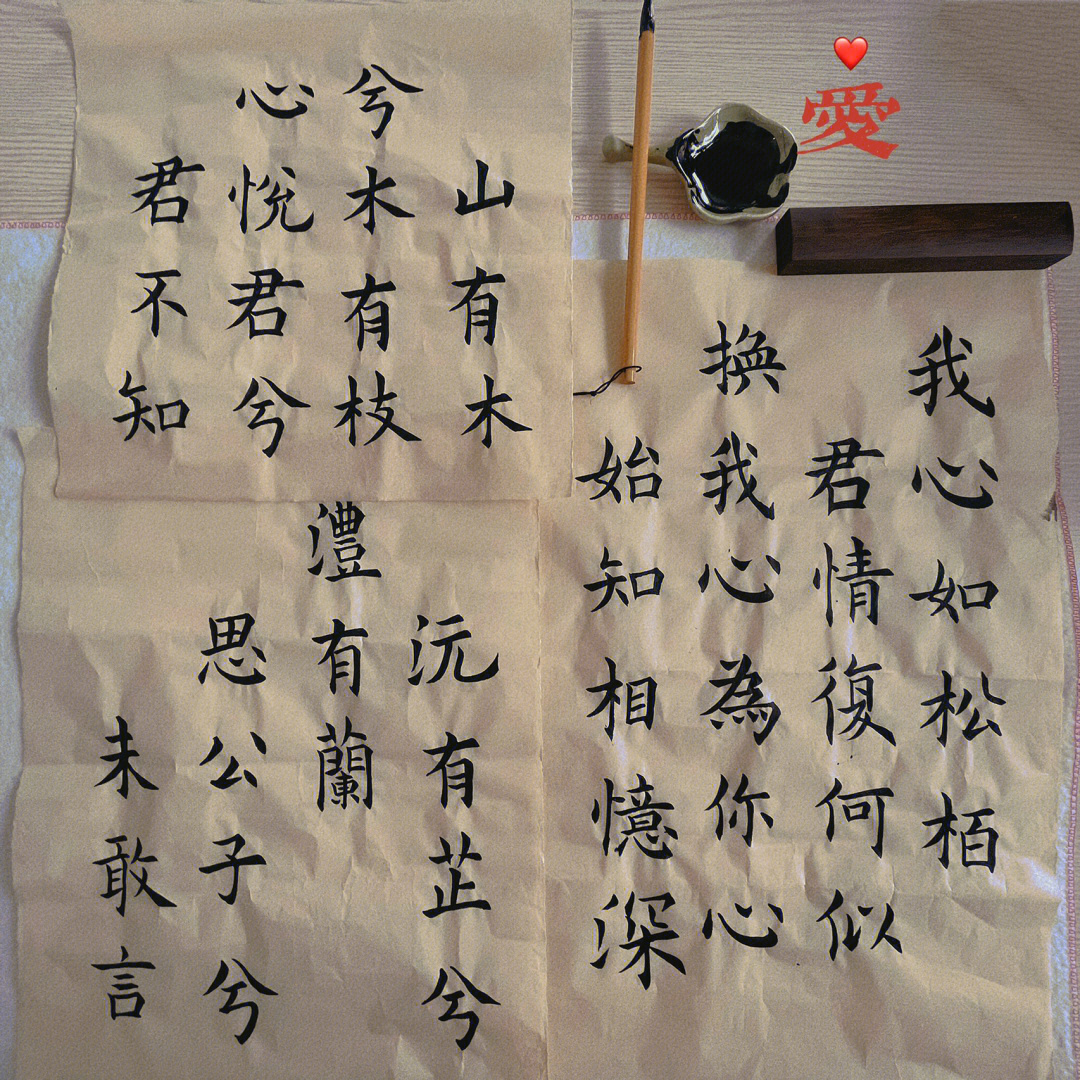 愛
山有木
兮木有枝
心悅君兮
君不知
我心如松栢
君情復何似
換我心為你心
始知相憶深
沅有芷兮
澧有蘭
思公子兮
未敢言